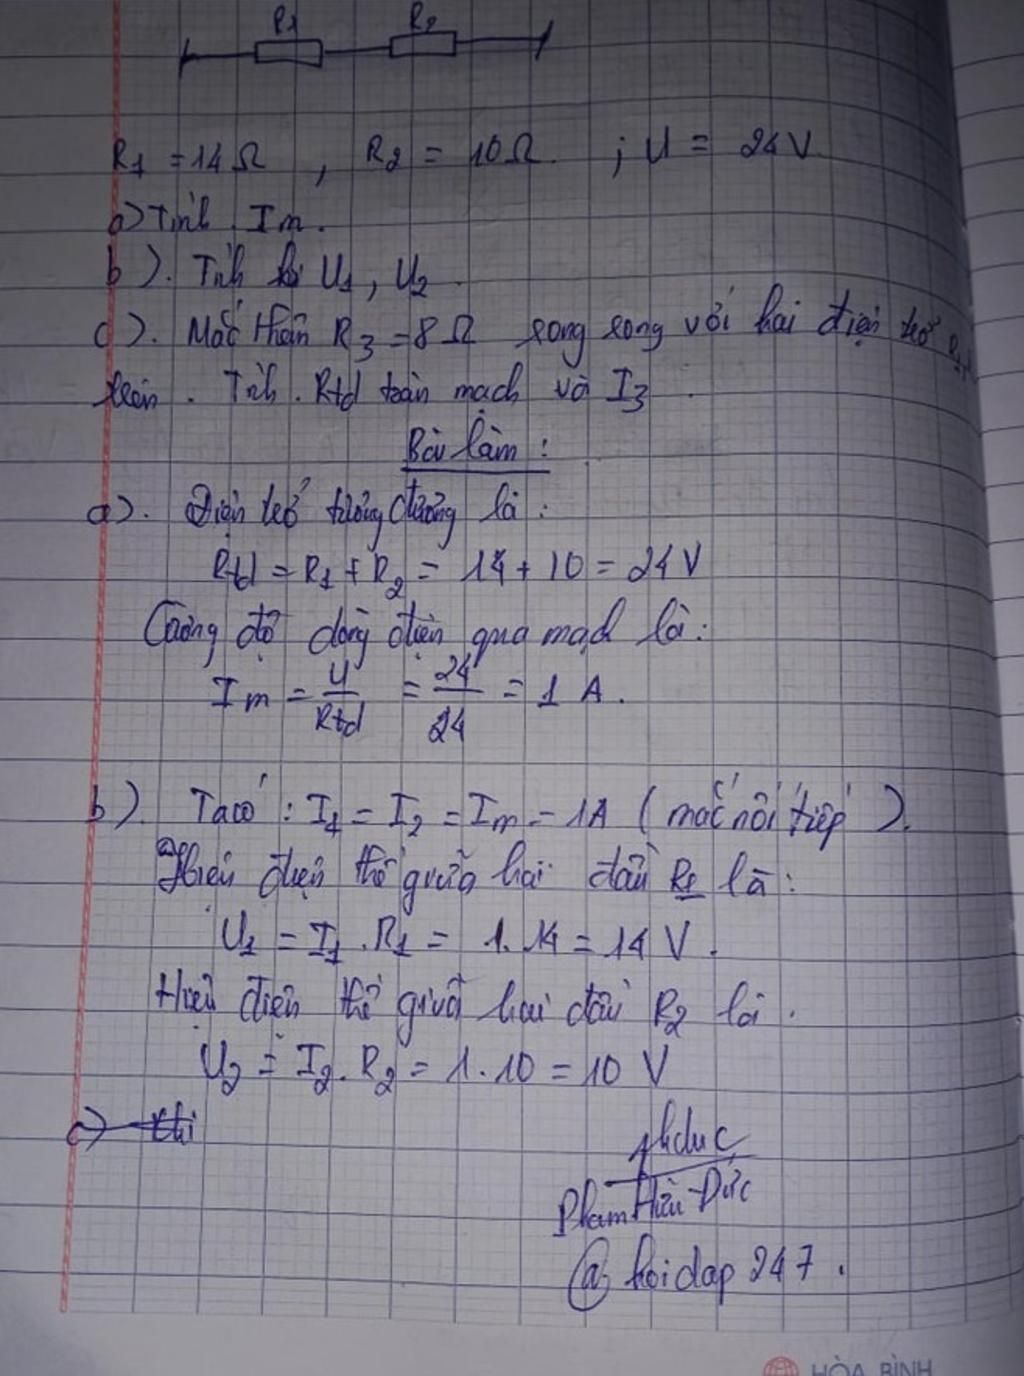 R1 R2
R1 = 14 Ω , R2 = 10 Ω ; U = 24 V
a) Tính Im.
b). Tính U1, U2
c). Mắc thêm R3 = 8 Ω song song với hai điện trở
trên. Tính. Rtd toàn mạch và I3.
Bài làm:
a). Điện trở tương đương là:
Rtd = R1 + R2 = 14 + 10 = 24 V
Cường độ dòng điện qua mạch là:
Im = U/Rtd = 24/24 = 1 A.
b). Ta có: I1 = I2 = Im = 1A (mắc nối tiếp).
Hiệu điện thế giữa hai đầu R1 là:
U1 = I1 . R1 = 1. 14 = 14 V.
Hiệu điện thế giữa hai đầu R2 là.
U2 = I2. R2 = 1. 10 = 10 V
c) thi
Phạm Hữu Đức
@ hoidap 247.
HÒA BÌNH